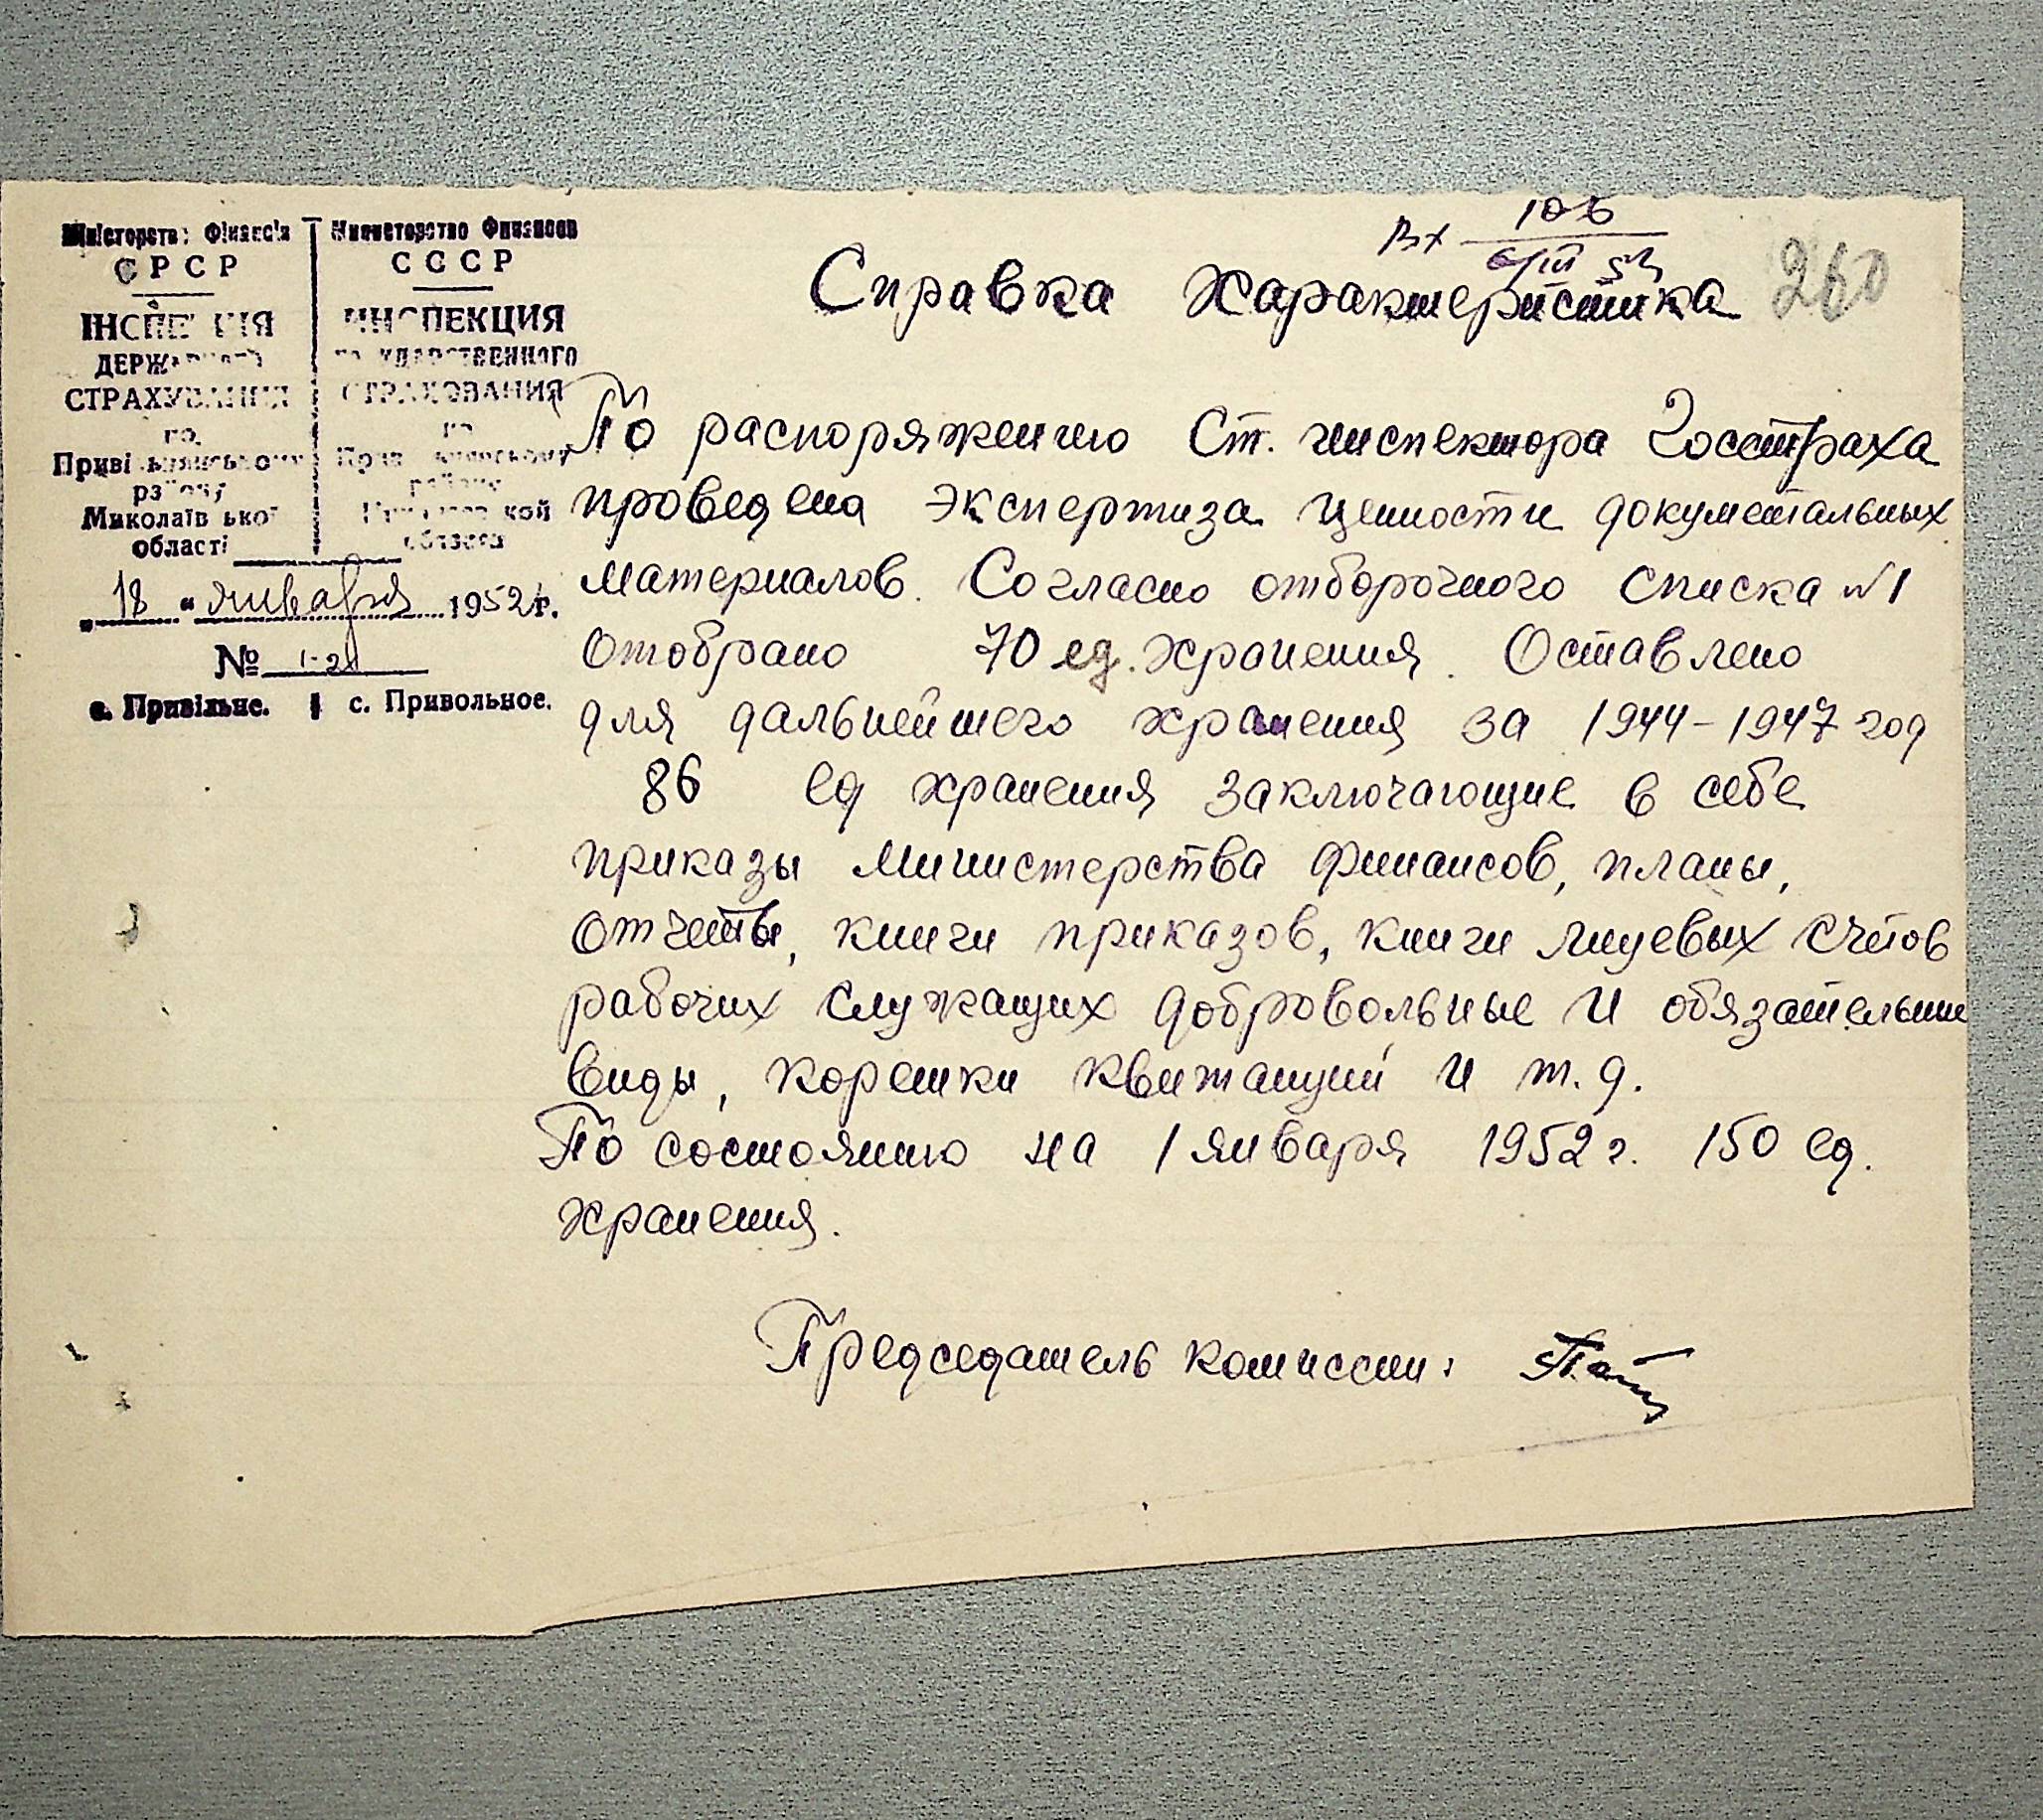 Міністерство Фінансів
СРСР
ІНСПЕКЦІЯ
ДЕРЖАВНОГО
СТРАХУВАННЯ
по
Привільнянському
району
Миколаївської
області
Министерство Финансов
СССР
ИНСПЕКЦИЯ
государственного
СТРАХОВАНИЯ
по
району
области
„18“ января 1952 г.
№ 1-2
с. Привільне. с. Привольное.
Вх 106
6/III 52
260
Справка характеристика
По распоряжению Ст. инспектора Госстраха
проведена экспертиза ценности документальных
материалов. Согласно отборочного списка №1
отобрано 70 ед. хранения. Оставлено
для дальнейшего хранения за 1944-1947 год
86 ед хранения заключающие в себе
приказы Министерства финансов, планы,
отчеты, книги приказов, книги лицевых счётов
рабочих служащих добровольные и обязательные
виды, корешки квитанций и т.д.
По состоянию на 1 января 1952 г. 150 ед.
хранения.
Председатель комиссии: